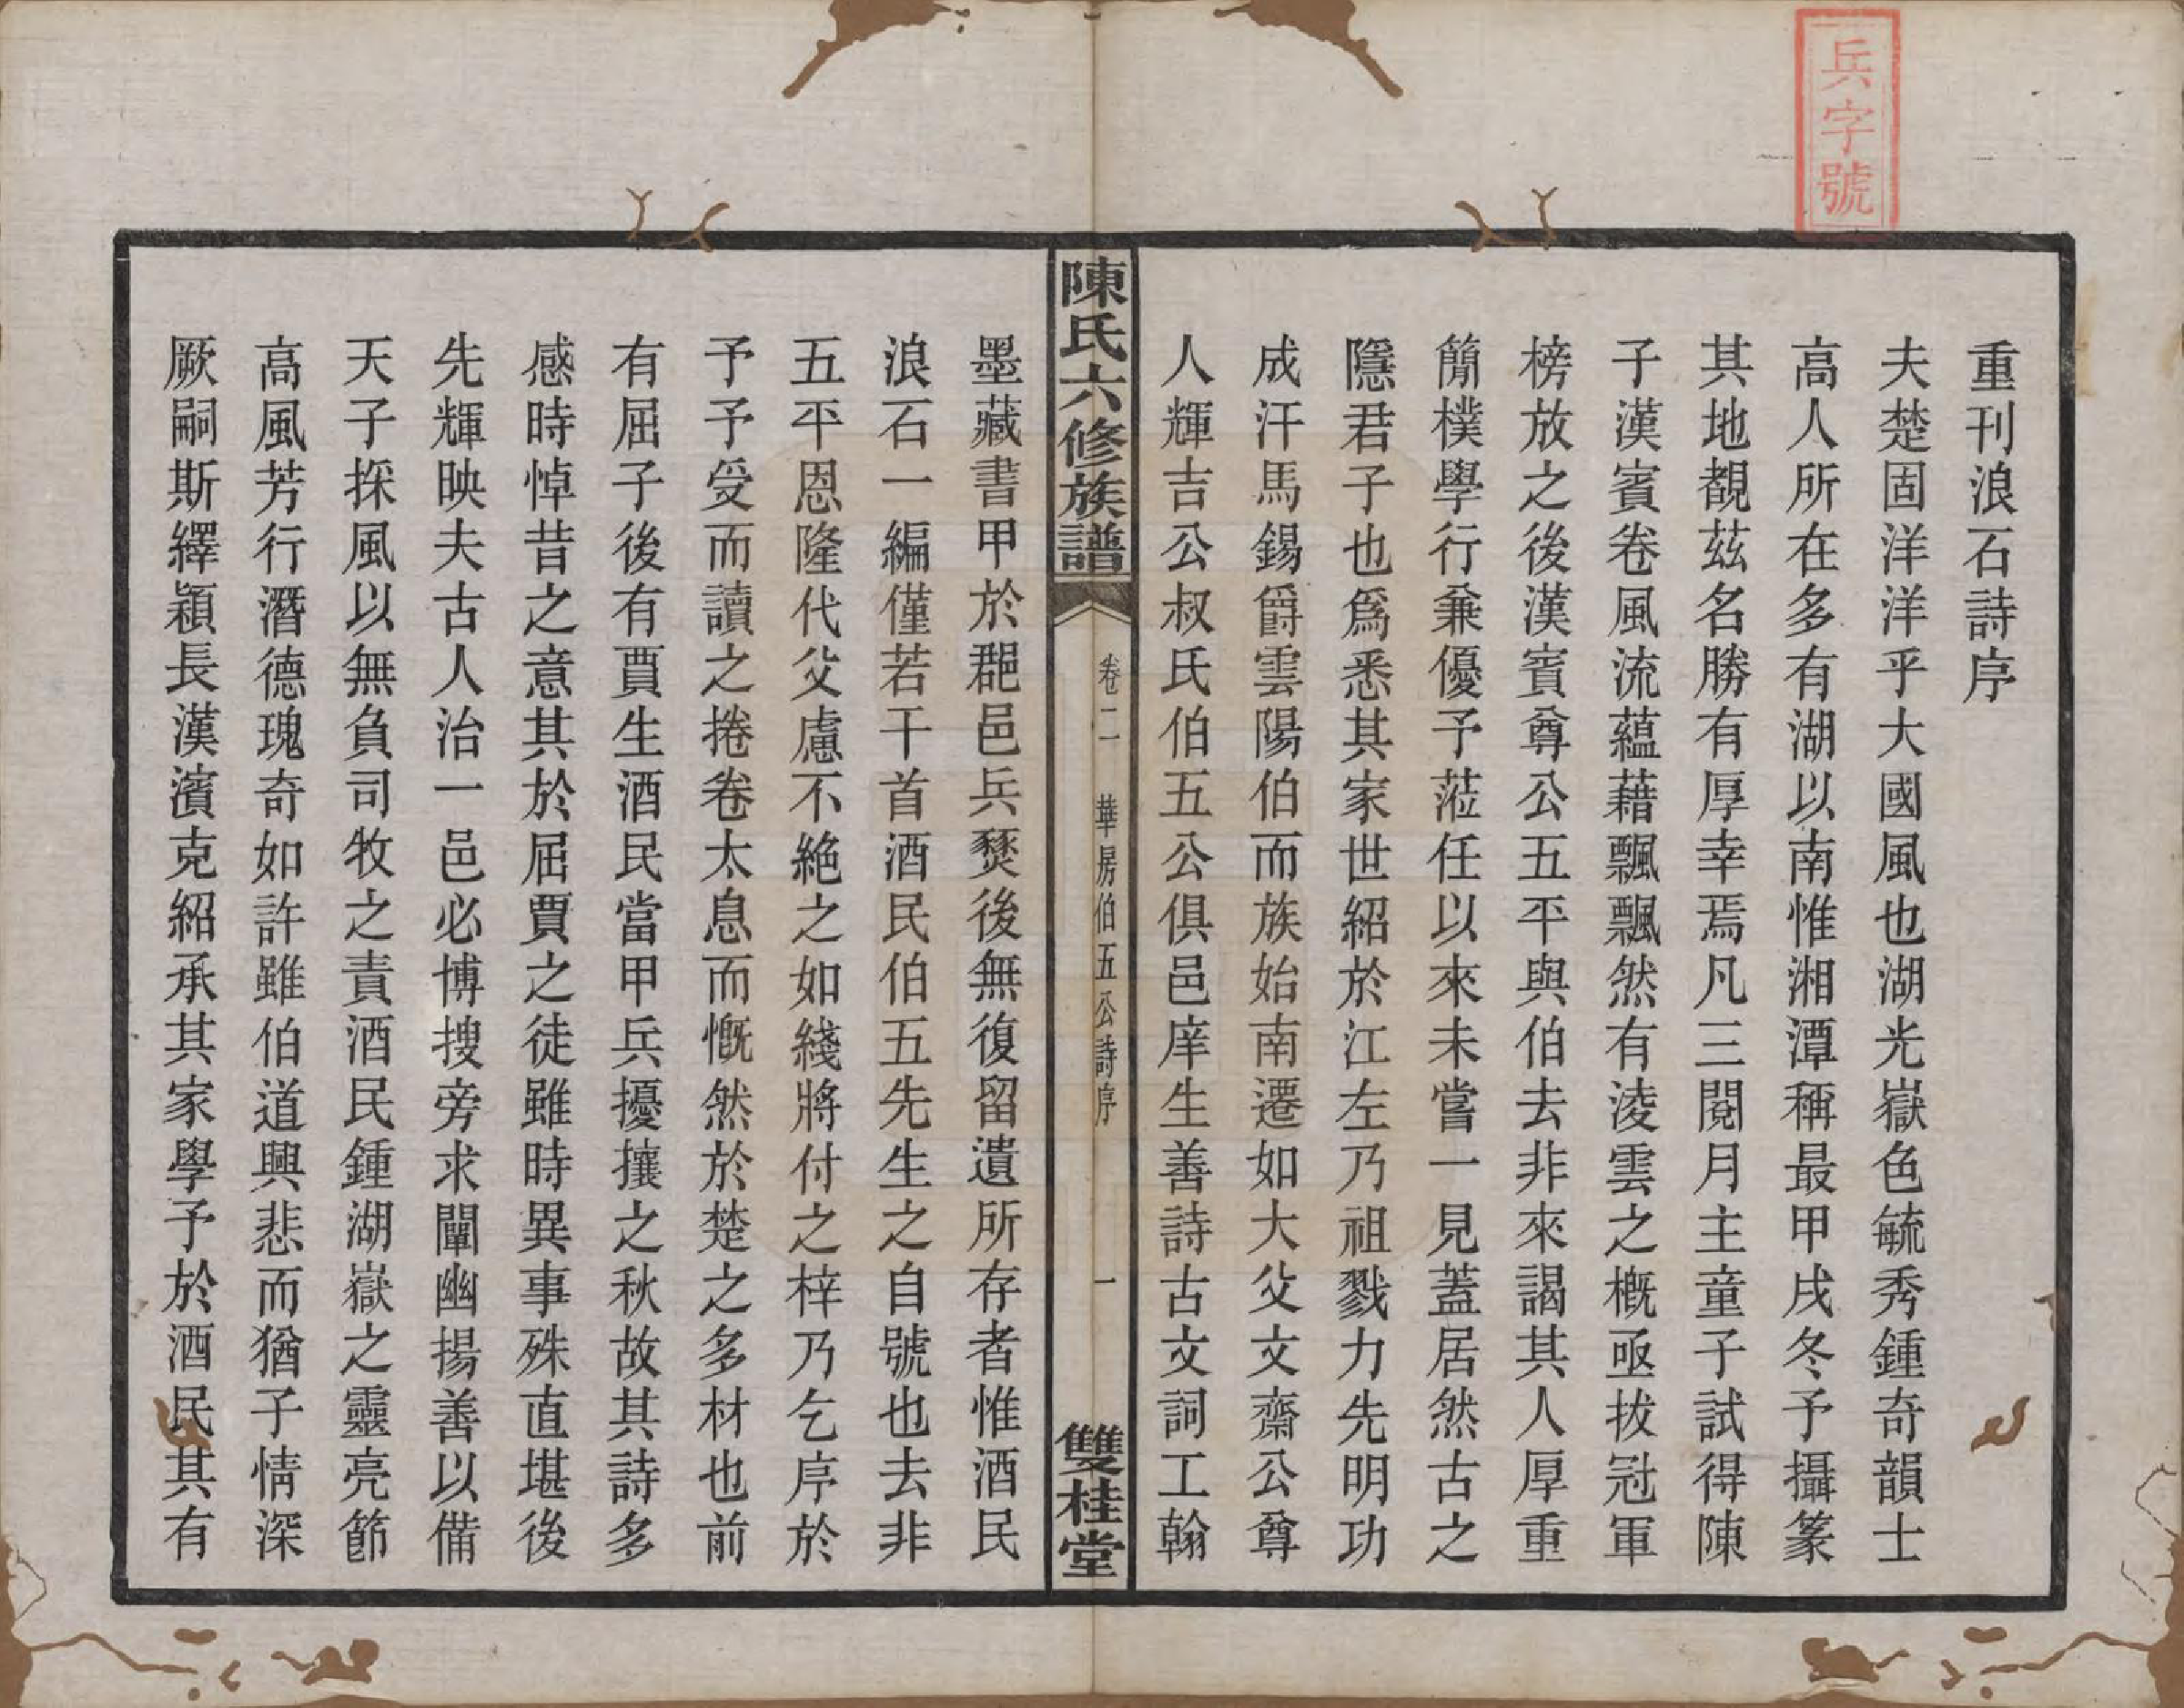 兵字號
重刊浪石詩序
夫楚固洋洋乎大國風也湖光嶽色毓秀鍾奇韻士
高人所在多有湖以南惟湘潭稱最甲戌冬予攝篆
其地覩茲名勝有厚幸焉凡三閱月主童子試得陳
子漢賓卷風流蘊藉飄飄然有淩雲之概亟拔冠軍
榜放之後漢賓尊公五平與伯去非來謁其人厚重
簡樸學行兼優予蒞任以來未嘗一見蓋居然古之
隱君子也爲悉其家世紹於江左乃祖戮力先明功
成汗馬錫爵雲陽伯而族始南遷如大父文齋公尊
人輝吉公叔氏伯五公俱邑庠生善詩古文詞工翰
陳氏六修族譜
卷二
華房伯五公詩序
一
雙桂堂
墨藏書甲於郡邑兵燹後無復留遺所存者惟酒民
浪石一編僅若干首酒民伯五先生之自號也去非
五平恩隆代父慮不絶之如綫將付之梓乃乞序於
予予受而讀之捲卷太息而慨然於楚之多材也前
有屈子後有賈生酒民當甲兵擾攘之秋故其詩多
感時悼昔之意其於屈賈之徒雖時異事殊直堪後
先輝映夫古人治一邑必博搜旁求闡幽揚善以備
天子採風以無負司牧之責酒民鍾湖嶽之靈亮節
高風芳行潛德瑰奇如許雖伯道興悲而猶子情深
厥嗣斯繹穎長漢濱克紹承其家學予於酒民其有